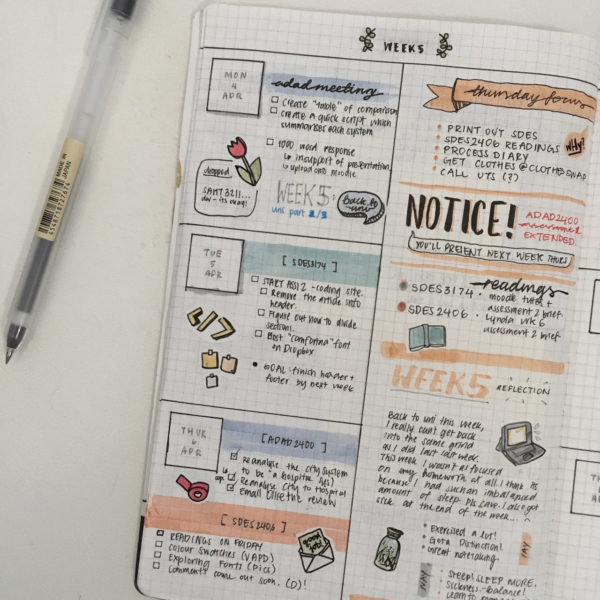 WEEK 5
MON
4
APR
adad meeting
Create "table" of comparison
create a quick script which
summarises each system
1000 word response
↳ in support of presentation
↳ upload onto moodle
dropped
SAHT3211...
WEEK 5:
uni part 2/3
back to uni
TUE
5
APR
[SDES3174]
START ASS 2 - coding site.
Remove the article info
header.
Figure out how to divide
sections.
Host "comfortaa" font
on Dropbox
</>
GOAL: finish header +
footer by next week
THUR
6
APR
[ADAD 2400]
Reanalyse the city system
to be "a hospital sys)
Reanalyse city to hospital
Email the review
[SDES2406]
READINGS ON FRIDAY
Colour Swatches (VAPD)
Exploring Fonts (pics)
Comments come out soon. (D)!
good job
thursday focus
PRINT OUT SDES
SDES2406 READINGS
why?
PROCESS DIARY
GET CLOTHES @CLOTHESWAP
CALL UTS (?)
NOTICE!
ADAD2400
assessment
EXTENDED.
YOU'LL PRESENT NEXT WEEK THURS
readings
SDES3174 • moodle tute +
assessment 2 brief.
SDES2406 • lynda wk 6
assessment 2 brief
WEEK 5
REFLECTION
Back to uni this week,
I really can't get back
into the same grind
as I did last week.
This week I wasn't as focused
on my homework at all. I think its
because I had such an imbalanced
amount of sleep. I also got
sick at the end of the week...
Exercised a lot!
Got a Distinction!
Great notetaking.
YAY
NAY
Sleep! SLEEP MORE.
Sickness - balance!
MADE IN
JAPAN